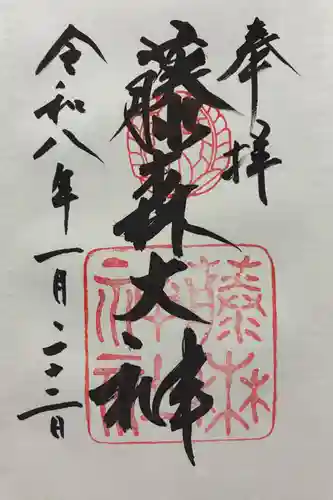 奉拝
藤森大神
藤森神社
令和八年一月二十二日